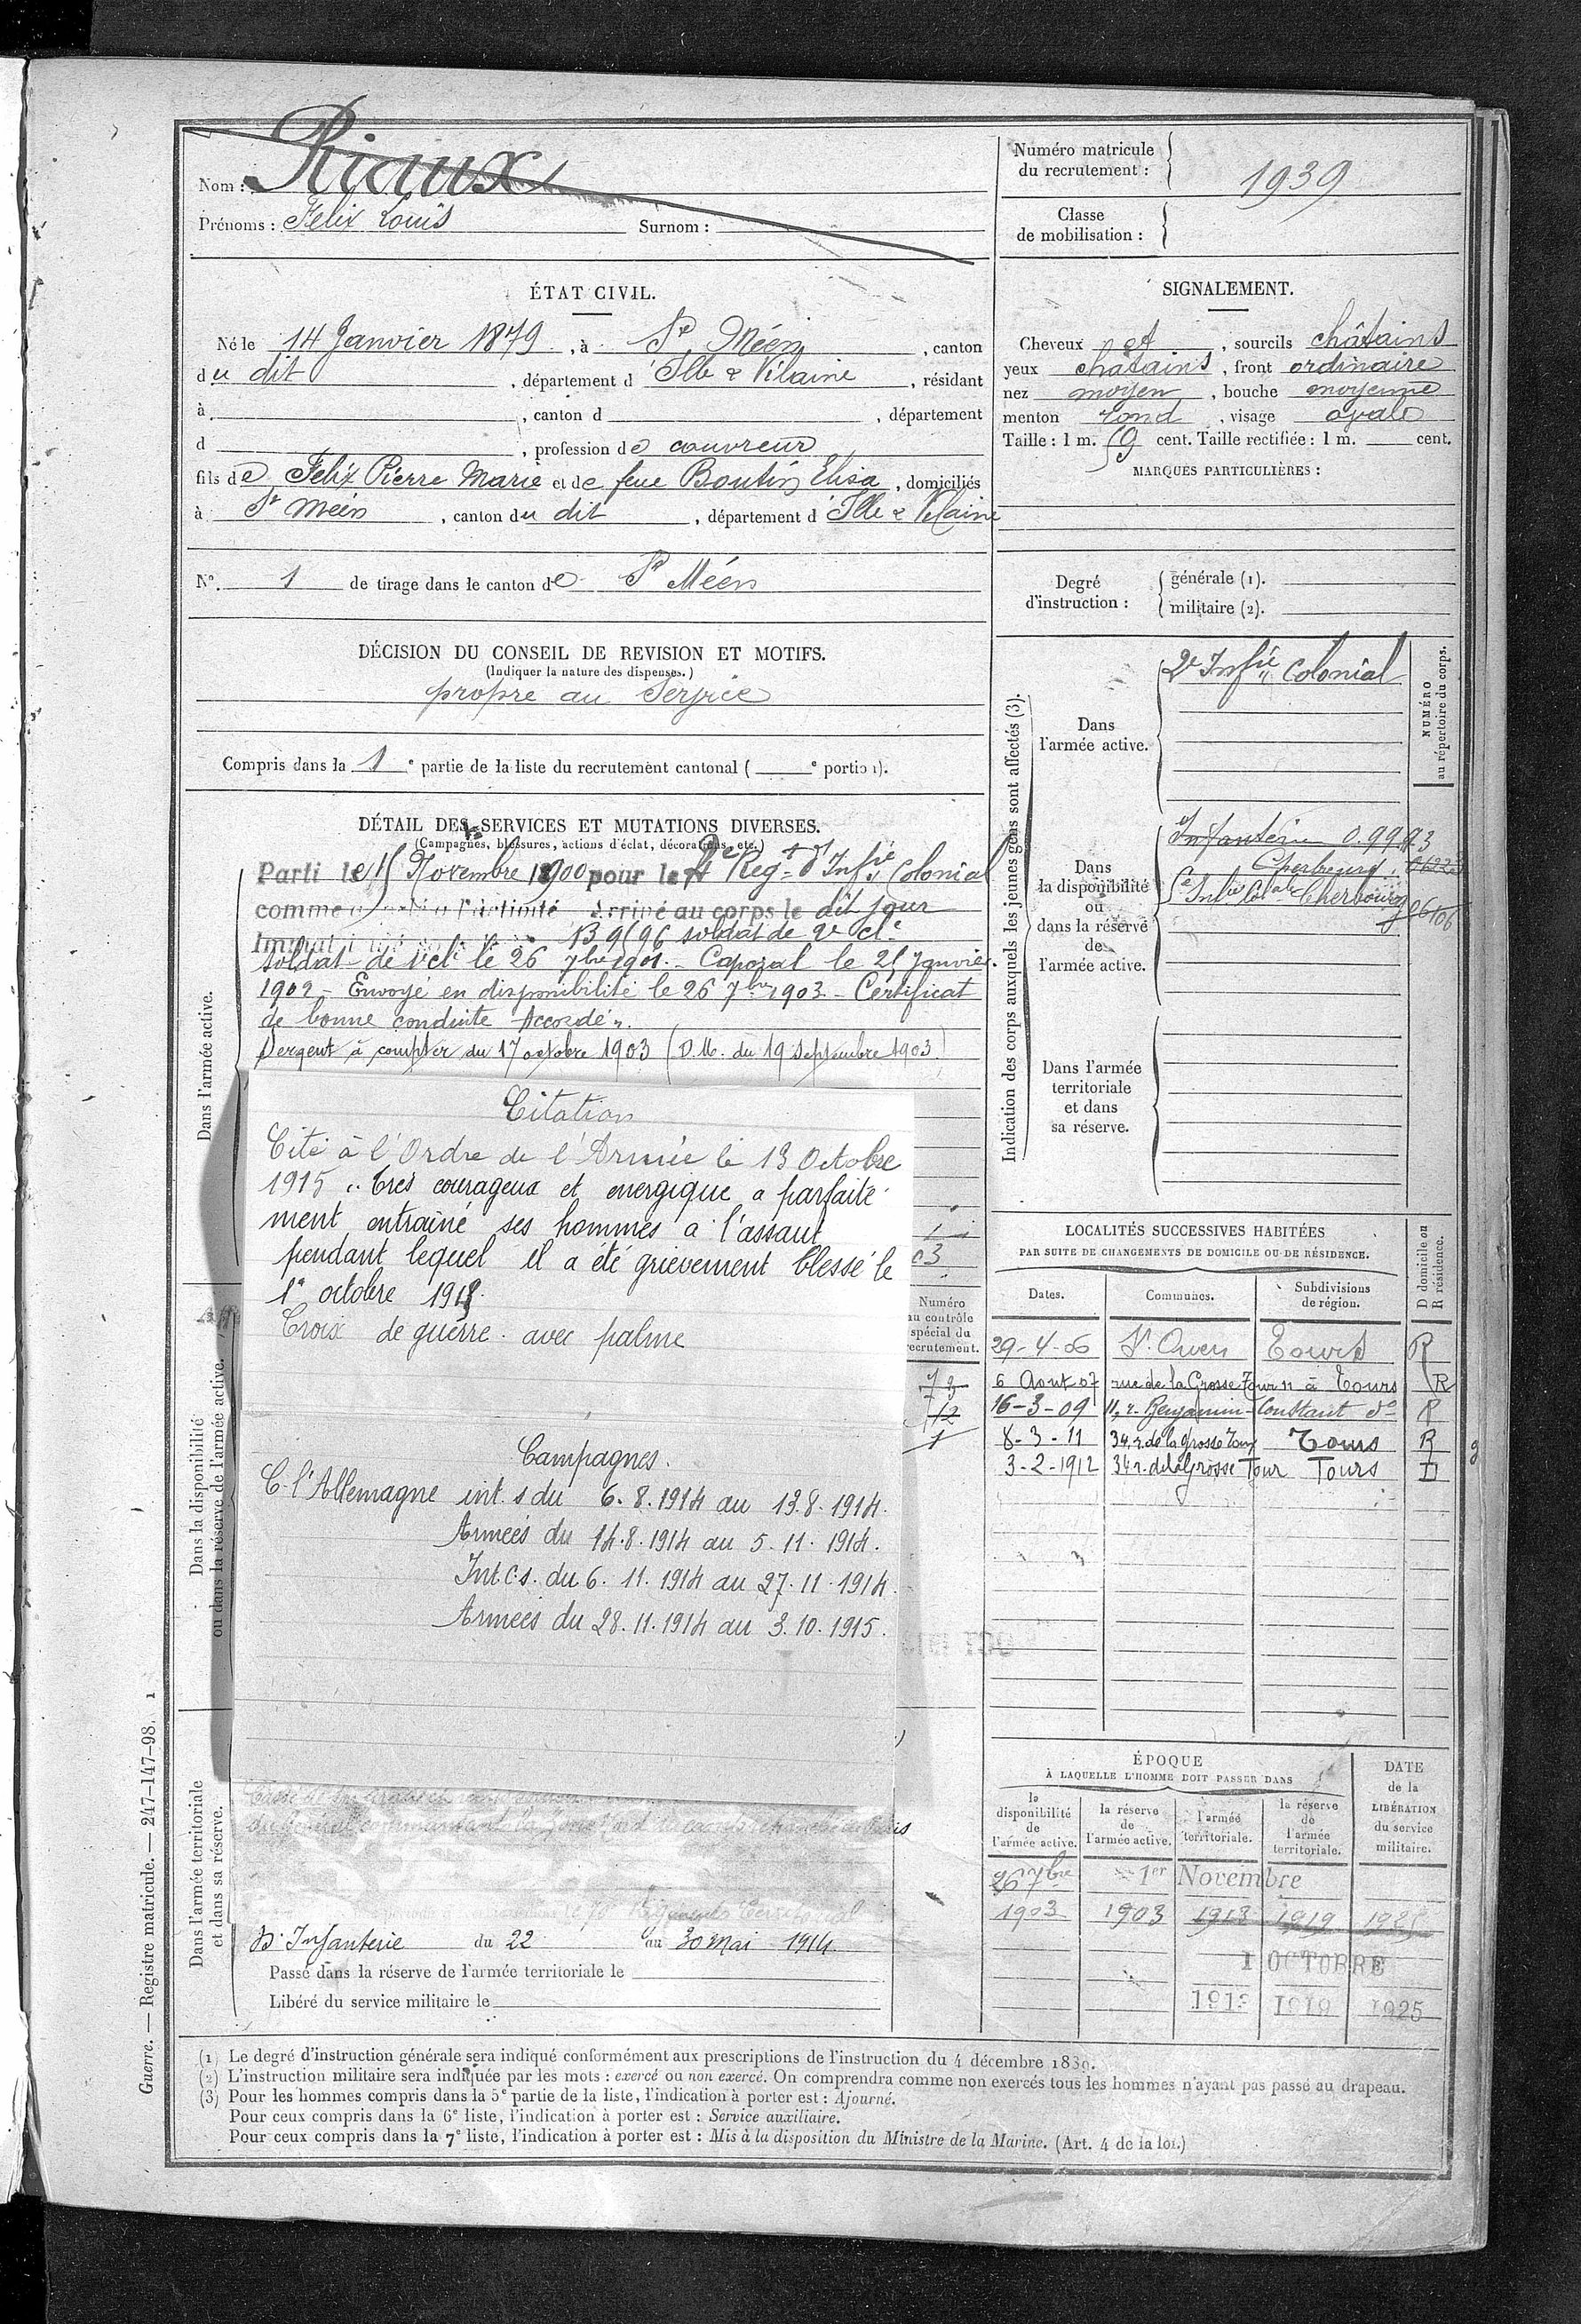 Nom : Riaux
Prénoms : Felix Louis Surnom :
Numéro matricule du recrutement : 1939
Classe de mobilisation :
ÉTAT CIVIL.
Né le 14 Janvier 1879, à St Méen, canton
du dit, département d'Ille & Vilaine, résidant
à , canton d , département
d , profession de couvreur
fils de Felix Pierre Marie et de feue Boutin Elisa, domiciliés
à St Méen, canton du dit, département d'Ille & Vilaine
N° 1 de tirage dans le canton de St Méen
SIGNALEMENT.
Cheveux et , sourcils châtains
yeux châtains, front ordinaire
nez moyen, bouche moyenne
menton rond, visage ovale
Taille : 1 m. 59 cent. Taille rectifiée : 1 m. cent.
MARQUES PARTICULIÈRES :
Degré d'instruction : générale (1).
militaire (2).
DÉCISION DU CONSEIL DE REVISION ET MOTIFS.
(Indiquer la nature des dispenses.)
propre au Service
Compris dans la 1e partie de la liste du recrutement cantonal ( e portion).
DÉTAIL DES SERVICES ET MUTATIONS DIVERSES.
(Campagnes, blessures, actions d'éclat, décorations, etc.)
Dans l'armée active.
Parti le 15 Novembre 1900 pour le 2e Regt d'Infie Colonial
comme Arrivé au corps le dit jour
B 9596 soldat de 2e cle
Soldat de 1e cle le 26 7bre 1901. - Caporal le 25 Janvier
1902 - Envoyé en disponibilité le 26 7bre 1903 - Certificat
de bonne conduite Accordé".
Sergent à compter du 17 octobre 1903 (D.M. du 19 Septembre 1903)
Citation
Cité à l'Ordre de l'Armée le 13 Octobre
1915 "tres courageux et energique a parfaite
ment entrainé ses hommes a l'assaut
pendant lequel il a été grievement blessé le
1er octobre 1915.
Croix de guerre avec palme
Campagnes.
C. l'Allemagne int. s du 6.8.1914 au 13.8.1914.
Armées du 14.8.1914 au 5.11.1914.
Int. c s. du 6.11.1914 au 27.11.1914.
Armées du 28.11.1914 au 3.10.1915.
Dans la disponibilité
ou dans la réserve de l'armée active.
03
Numéro
au contrôle
spécial du
recrutement.
73
12
1
Dans l'armée territoriale
et dans sa réserve.
d'Infanterie du 22 au 30 mai 1914.
Passé dans la réserve de l'armée territoriale le
Libéré du service militaire le
Indication des corps auxquels les jeunes gens sont affectés (3).
NUMÉRO
au répertoire du corps.
Dans l'armée active.
2e Infie Colonial
Dans la disponibilité ou dans la réserve de l'armée active.
Infanterie
Cherbourg
Infie Cherbourg
Dans l'armée territoriale et dans sa réserve.
LOCALITÉS SUCCESSIVES HABITÉES
PAR SUITE DE CHANGEMENTS DE DOMICILE OU DE RÉSIDENCE.
Dates. Communes. Subdivisions de région. D domicile ou R résidence.
29-4-06 St. Ouen Tours R
6 Aout 07 rue de la Grosse Tour 11 à Tours R
16-3-09 11, r. Benjamin-Constant do R
8-3-11 34, r. de la Grosse Tour Tours R
3-2-1912 34 r. de la Grosse Tour Tours D
ÉPOQUE
À LAQUELLE L'HOMME DOIT PASSER DANS
la disponibilité de l'armée active.
la réserve de l'armée active.
l'armée territoriale.
la réserve de l'armée territoriale.
DATE de la LIBÉRATION du service militaire.
26 7bre 1er Novembre
1903 1903 1913 1919 1925
1 OCTOBRE
1913 1919 1925
(1) Le degré d'instruction générale sera indiqué conformément aux prescriptions de l'instruction du 4 décembre 1889.
(2) L'instruction militaire sera indiquée par les mots : exercé ou non exercé. On comprendra comme non exercés tous les hommes n'ayant pas passé au drapeau.
(3) Pour les hommes compris dans la 5e partie de la liste, l'indication à porter est : Ajourné.
Pour ceux compris dans la 6e liste, l'indication à porter est : Service auxiliaire.
Pour ceux compris dans la 7e liste, l'indication à porter est : Mis à la disposition du Ministre de la Marine. (Art. 4 de la loi.)
Guerre. — Registre matricule. — 247-147-98. 1